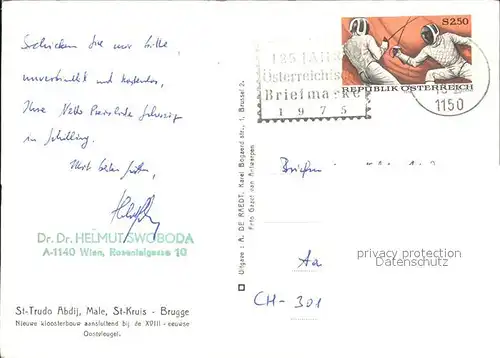 Schicken Sie mir bitte,
unverbindlich und kostenlos,
Ihre Netto Preisliste
in Schilling.
Mit besten Grüßen,
Dr. Dr. HELMUT SWOBODA
A-1140 Wien, Rosentalgasse 10
St-Trudo Abdij, Male, St-Kruis - Brugge
Nieuwe kloosterbouw aansluitend bij de XVIII - eeuwse
Oostvleugel.
Uitgave : A. DE RAEDT, Karel Bogaerd str., 1, Brussel 2.
Foto Geert van Antwerpen
125 JAHRE
Österreichische
Briefmarke
1975
S2.50
REPUBLIK ÖSTERREICH
1150
An
CH-301
privacy protection
watermark